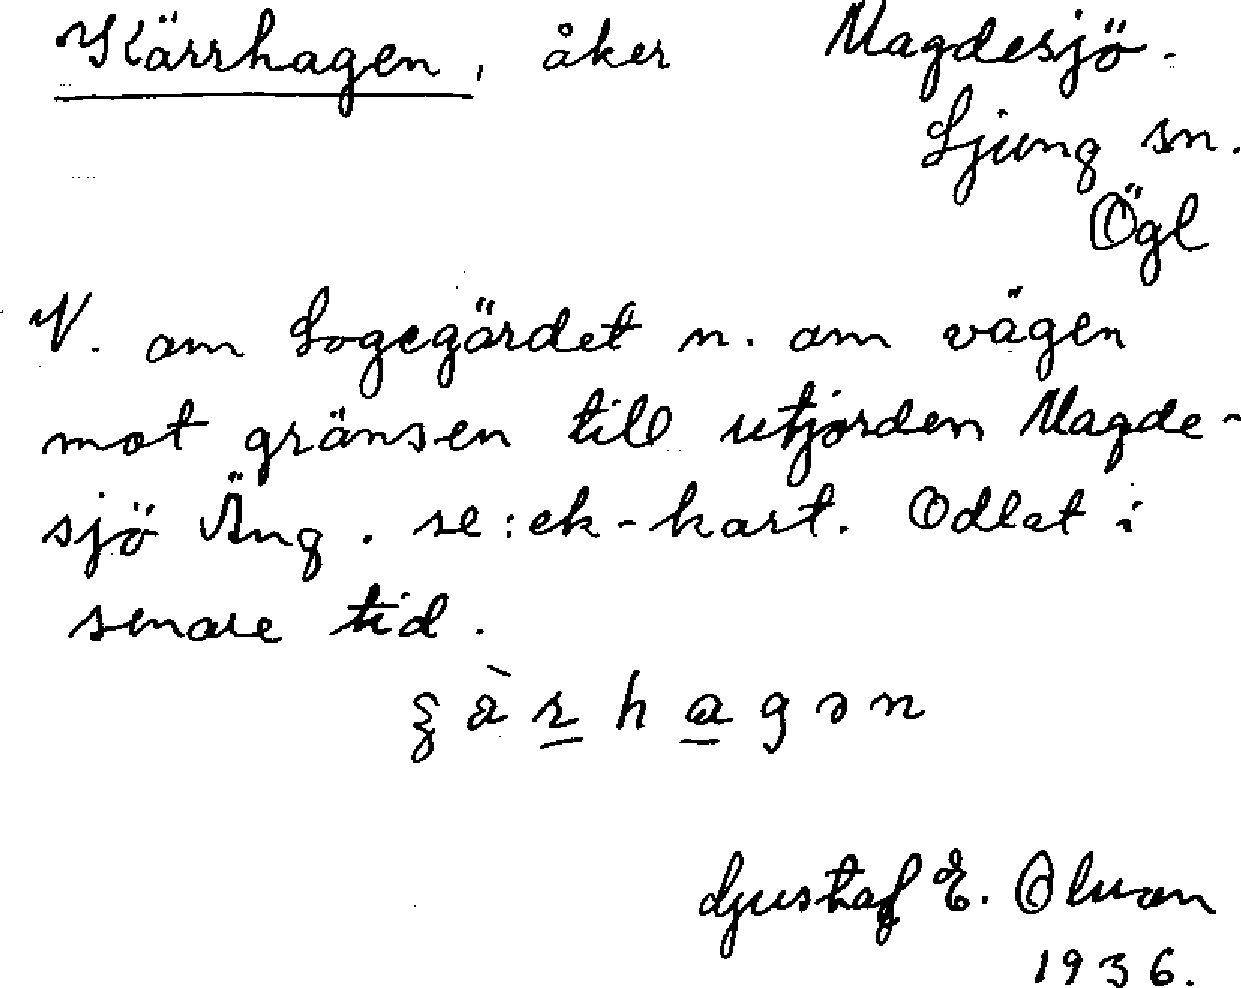 Kärrhagen, åker Magdesjö.
Ljung sn.
Ögl
N. om Logegärdet n. om vägen
mot gränsen till utjorden Magde-
sjö Äng. se: ek-kart. Odlat i
senare tid.
Gustaf E. Olson
1936.